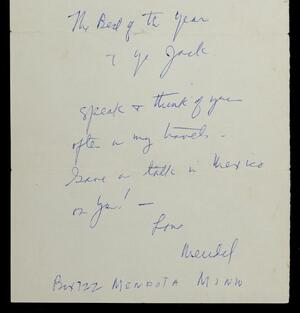 The Best of the Year
to you Jack
Speak & think of you
often in my travels –
Gave a talk in Mexico
on you! –
Love
Mendel
Box 222 MENDOTA MINN